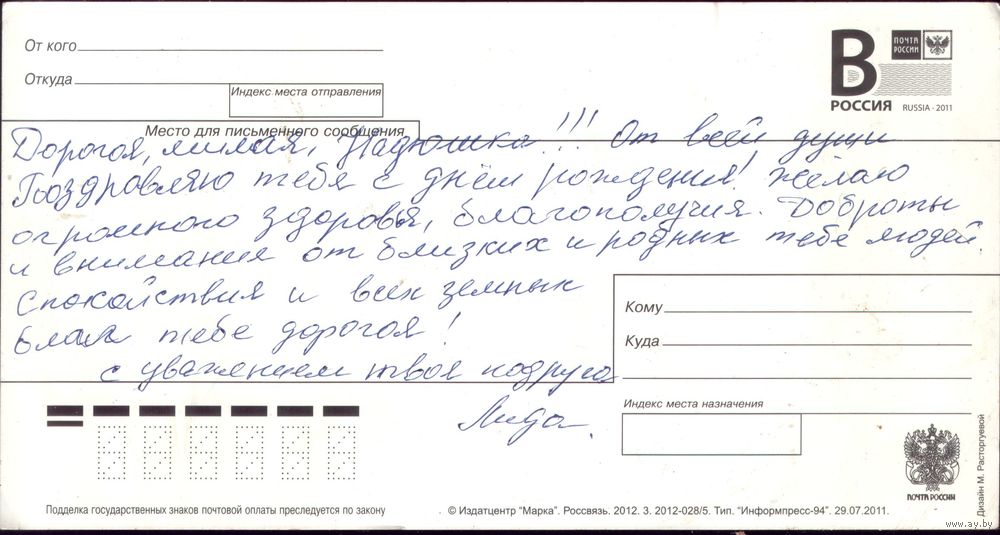 От кого
Откуда
Индекс места отправления
Место для письменного сообщения
В
ПОЧТА РОССИИ
РОССИЯ RUSSIA - 2011
Дорогая, милая, Надюшка!!! От всей души
Поздравляю тебя с днём рождения! Желаю
огромного здоровья, благополучия. Доброты
и внимания от близких и родных тебе людей.
Спокойствия и всех земных
благ тебе дорогая!
с уважением твоя подруга
Лида.
Кому
Куда
Индекс места назначения
ПОЧТА РОССИИ
Дизайн М. Расторгуевой
Подделка государственных знаков почтовой оплаты преследуется по закону
© Издатцентр "Марка". Россвязь. 2012. З. 2012-028/5. Тип. "Информпресс-94". 29.07.2011.
www.ay.by